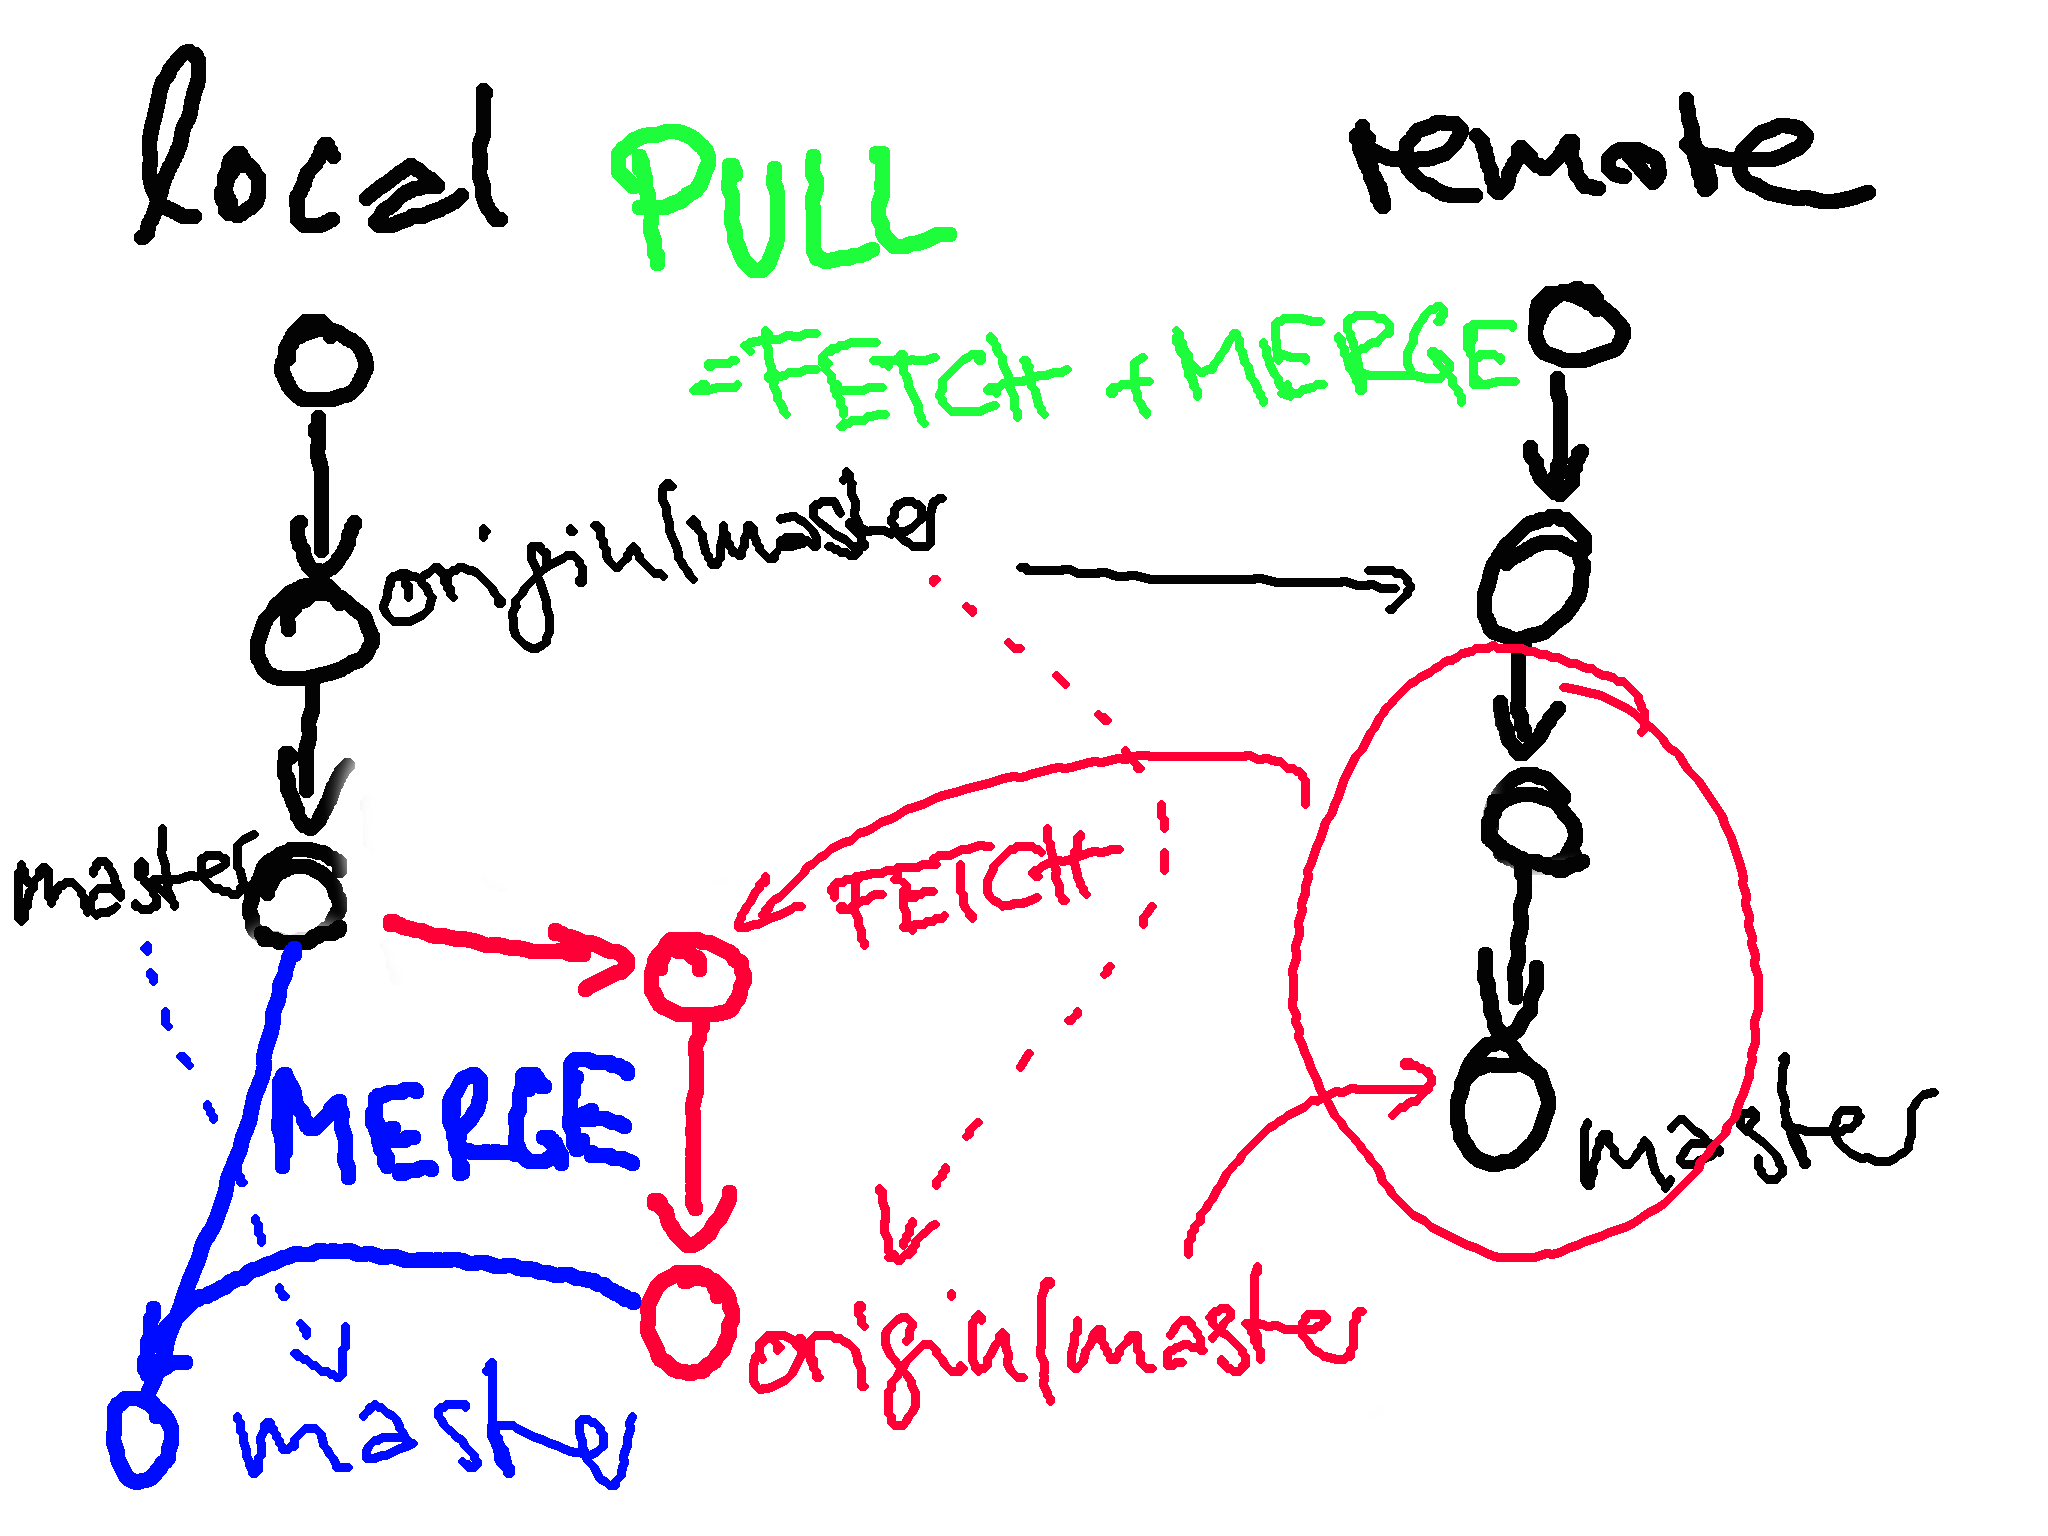 local PULL remote
=FETCH + MERGE
origin/master
master
FETCH
MERGE
master
origin/master
master